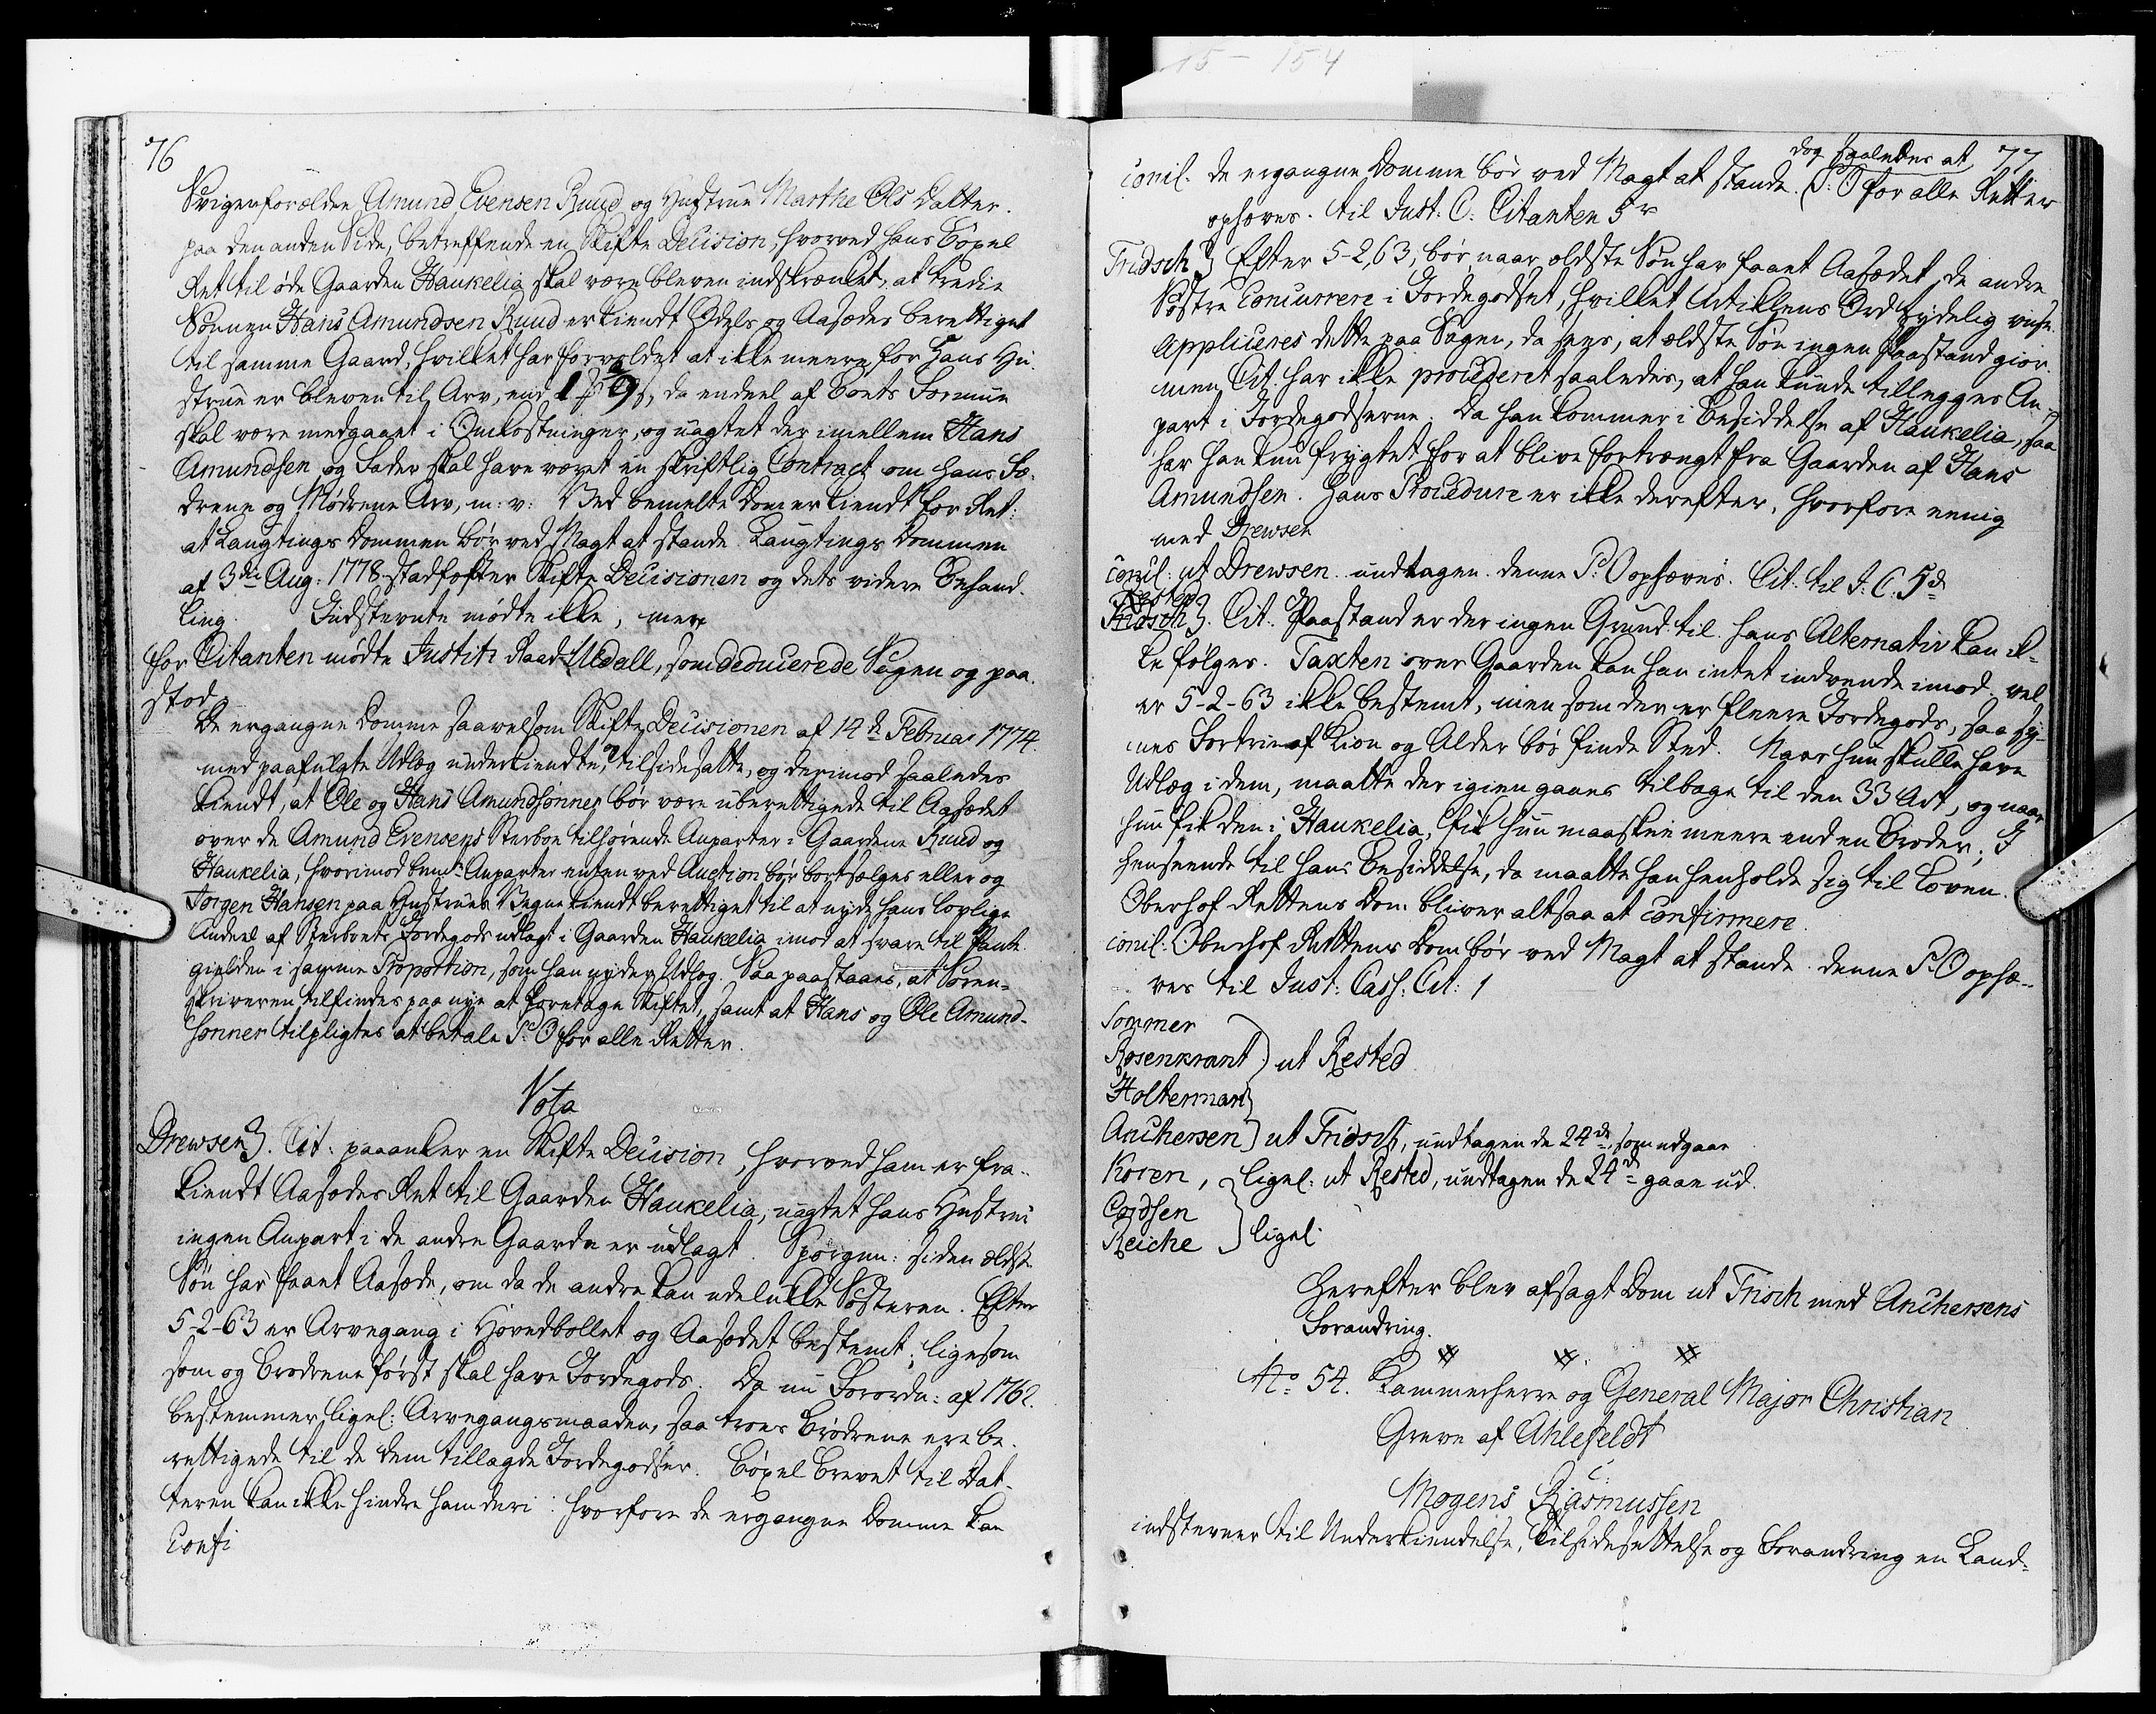 76
Svigerforældre Amund Evensen Ruud og Hustrue Marthe Ols Datter.
paa den anden Side, betreffende en Skifte Decision, hvorved hans Bøxel
Ret til øde Gaarden Haukelia skal være bleven indskrænket, at tredie
Sønnen Hans Amundsen Ruud er kiendt Odels og Aasædes berettiget
til samme Gaard, hvilket har forvoldet at ikke meere for Hans Hu-
strue er bleven til Arv, end 1 9 s, da endeel af Boets Formue
skal være medgaaet i Omkostninger, og uagtet der imellem Hans
Amundsen og Fader skal have været en skriftlig Contract om hans Fæ-
drene og Mødrene Arv, m: v: Ved bemelte Dom er kiendt for Ret:
at Laugtings Dommen bør ved Magt at stande. Laugtings Dommen
af 3die Aug: 1778 stadfæster Skifte Decisionen og dets videre Behand-
ling. Indstevnte mødte ikke, men
for Citanten mødte Justitz Raad Uldall, som deducerede Sagen og paa-
stod
De ergangne Domme saavelsom Skifte Decisionen af 14de Februar 1774
med paafulgte Udlæg underkiendte, tilsidesatte, og derimod saaledes
kiendt, at Ole og Hans Amundsønner bør være uberettigede til Aasædet
over de Amund Evensens Sterboe tilhørende Anparter i Gaardene Ruud og
Haukelia, hvorimod bemte Anparter enten ved Auction bør bortsælges eller og
Jørgen Hansen paa Hustrues Vegne kiendt berettiget til at nyde hans lovlige
Andeel af Sterboets Jordegods udlagt i Gaarden Haukelia imod at svare til Pante
gielden i samme Proportion, som han nyder Udlæg. Saa paastaaes, at Soren-
skriveren tilfindes paa nye at foretage Skiftet, samt at Hans og Ole Amund-
sønner tilpligtes at betale P: O for alle Retter.
Vota
Drewsen. Cit: paaanker en Skifte Decision, hvorved ham er fra-
kiendt Aasædes Ret til Gaarden Haukelia, uagtet hans Hustrue
ingen Anpart i de andre Gaarde er udlagt. Spørgsm: siden ældste
Søn har faaet Aasæde, om da de andre kan udelukke Søsteren. Efter
5-2-63 er Arvegang i Hovedbollet og Aasædet bestemt, ligesom
som og Brødrene først skal have Jordegods. Da nu Forordn: af 1762.
bestemmer ligel: Arvegangsmaaden, saa troer Brødrene ere be-
rettigede til de dem tillagde Jordegodser. Bøxel Brevet til Dat-
teren kan ikke hindre ham deri: hvorfore de ergangne Domme kan
Confi
77
dog saaledes at
concl. de ergangne Domme bør ved Magt at stande. P: O for alle Retter
ophæves. til Just: C: Citanten 5
Fridsch Efter 5-2, 63, bør, naar ældste Søn har faaet Aasædet, de andre
Søstre Concurrere i Jordegodset, hvilket Artiklens Ord tydelig viise.
Appliceres dette paa Sagen, da sees, at ældste Søn ingen Paastand giør.
men Cit: har ikke procederet saaledes, at han kunde tillegges An-
part i Jordegodserne. Da han kommer i Besiddelse af Haukelia, saa
har han kun frygtet for at blive fortrængt fra Gaarden af Hans
Amundsen. Hans Procedure er ikke derefter, hvorfore eenig
med Drewsen
concl: ut Drewsen undtagen denne P: O ophæves. Cit: til J: C: 5
Rested
Fridsch. Cit: Paastand er der ingen Grund til. hans Alternativ kan ik-
ke følges. Taxten over Gaarden kan han intet indvende imod. vel
er 5-2-63 ikke bestemt, men som der er fleere Jordegods, saa sy-
nes Fortrin af Kion og Alder bør finde Sted. Naar hun skulle have
Udlæg i dem, maatte der igien gaaes tilbage til den 33 Art, og naar
hun fik den i Haukelia, fik hun maaskee meere end en Broder; I
henseende til hans Besiddelse, da maatte han henholde sig til Loven.
Oberhof Rettens Dom bliver altsaa at confirmere.
concl: Oberhof Rettens Dom bør ved Magt at stande. denne P: O ophæ-
ves til Just: Cass: Cit: 1
Sommer
Rosenkrant ut Rested
Holterman
Anchersen ut Fridsch, undtagen de 24de, som udgaar
Koren, ligel: ut Rested, undtagen de 24de gaae ud.
Cordsen
Reiche ligel:
Herefter blev afsagt Dom ut Frisch med Anchersens
Forandring.
No: 54. Kammerherre og General Major Christian
Greve af Ahlefeldt
C:
Mogens Rasmussen
indstevner til Underkiendelse, Tilsidesættelse og Forandring en Land-